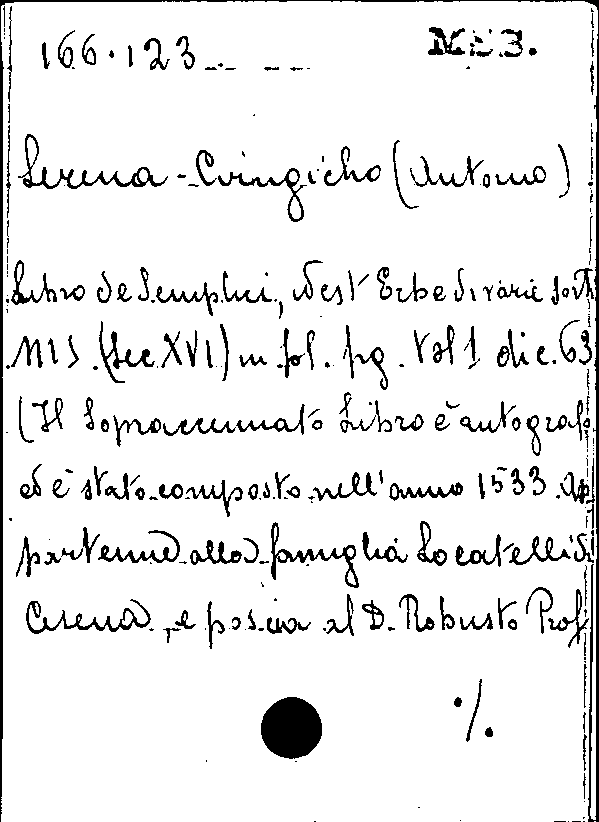 166.123 MSS.
Serena-Cvingicho (Antonio)
Libro de Semplici, id est Erbe di varie sort
MIS. (Sec. XVI) in fol. pg. Vol 1 di c. 63
(Il Sopraccennato Libro è autografo
ed è stato composto nell'anno 1533. Ap
partenne alla famiglia Locatelli di
Cesena, e poscia al D. Robusto Prof
./.